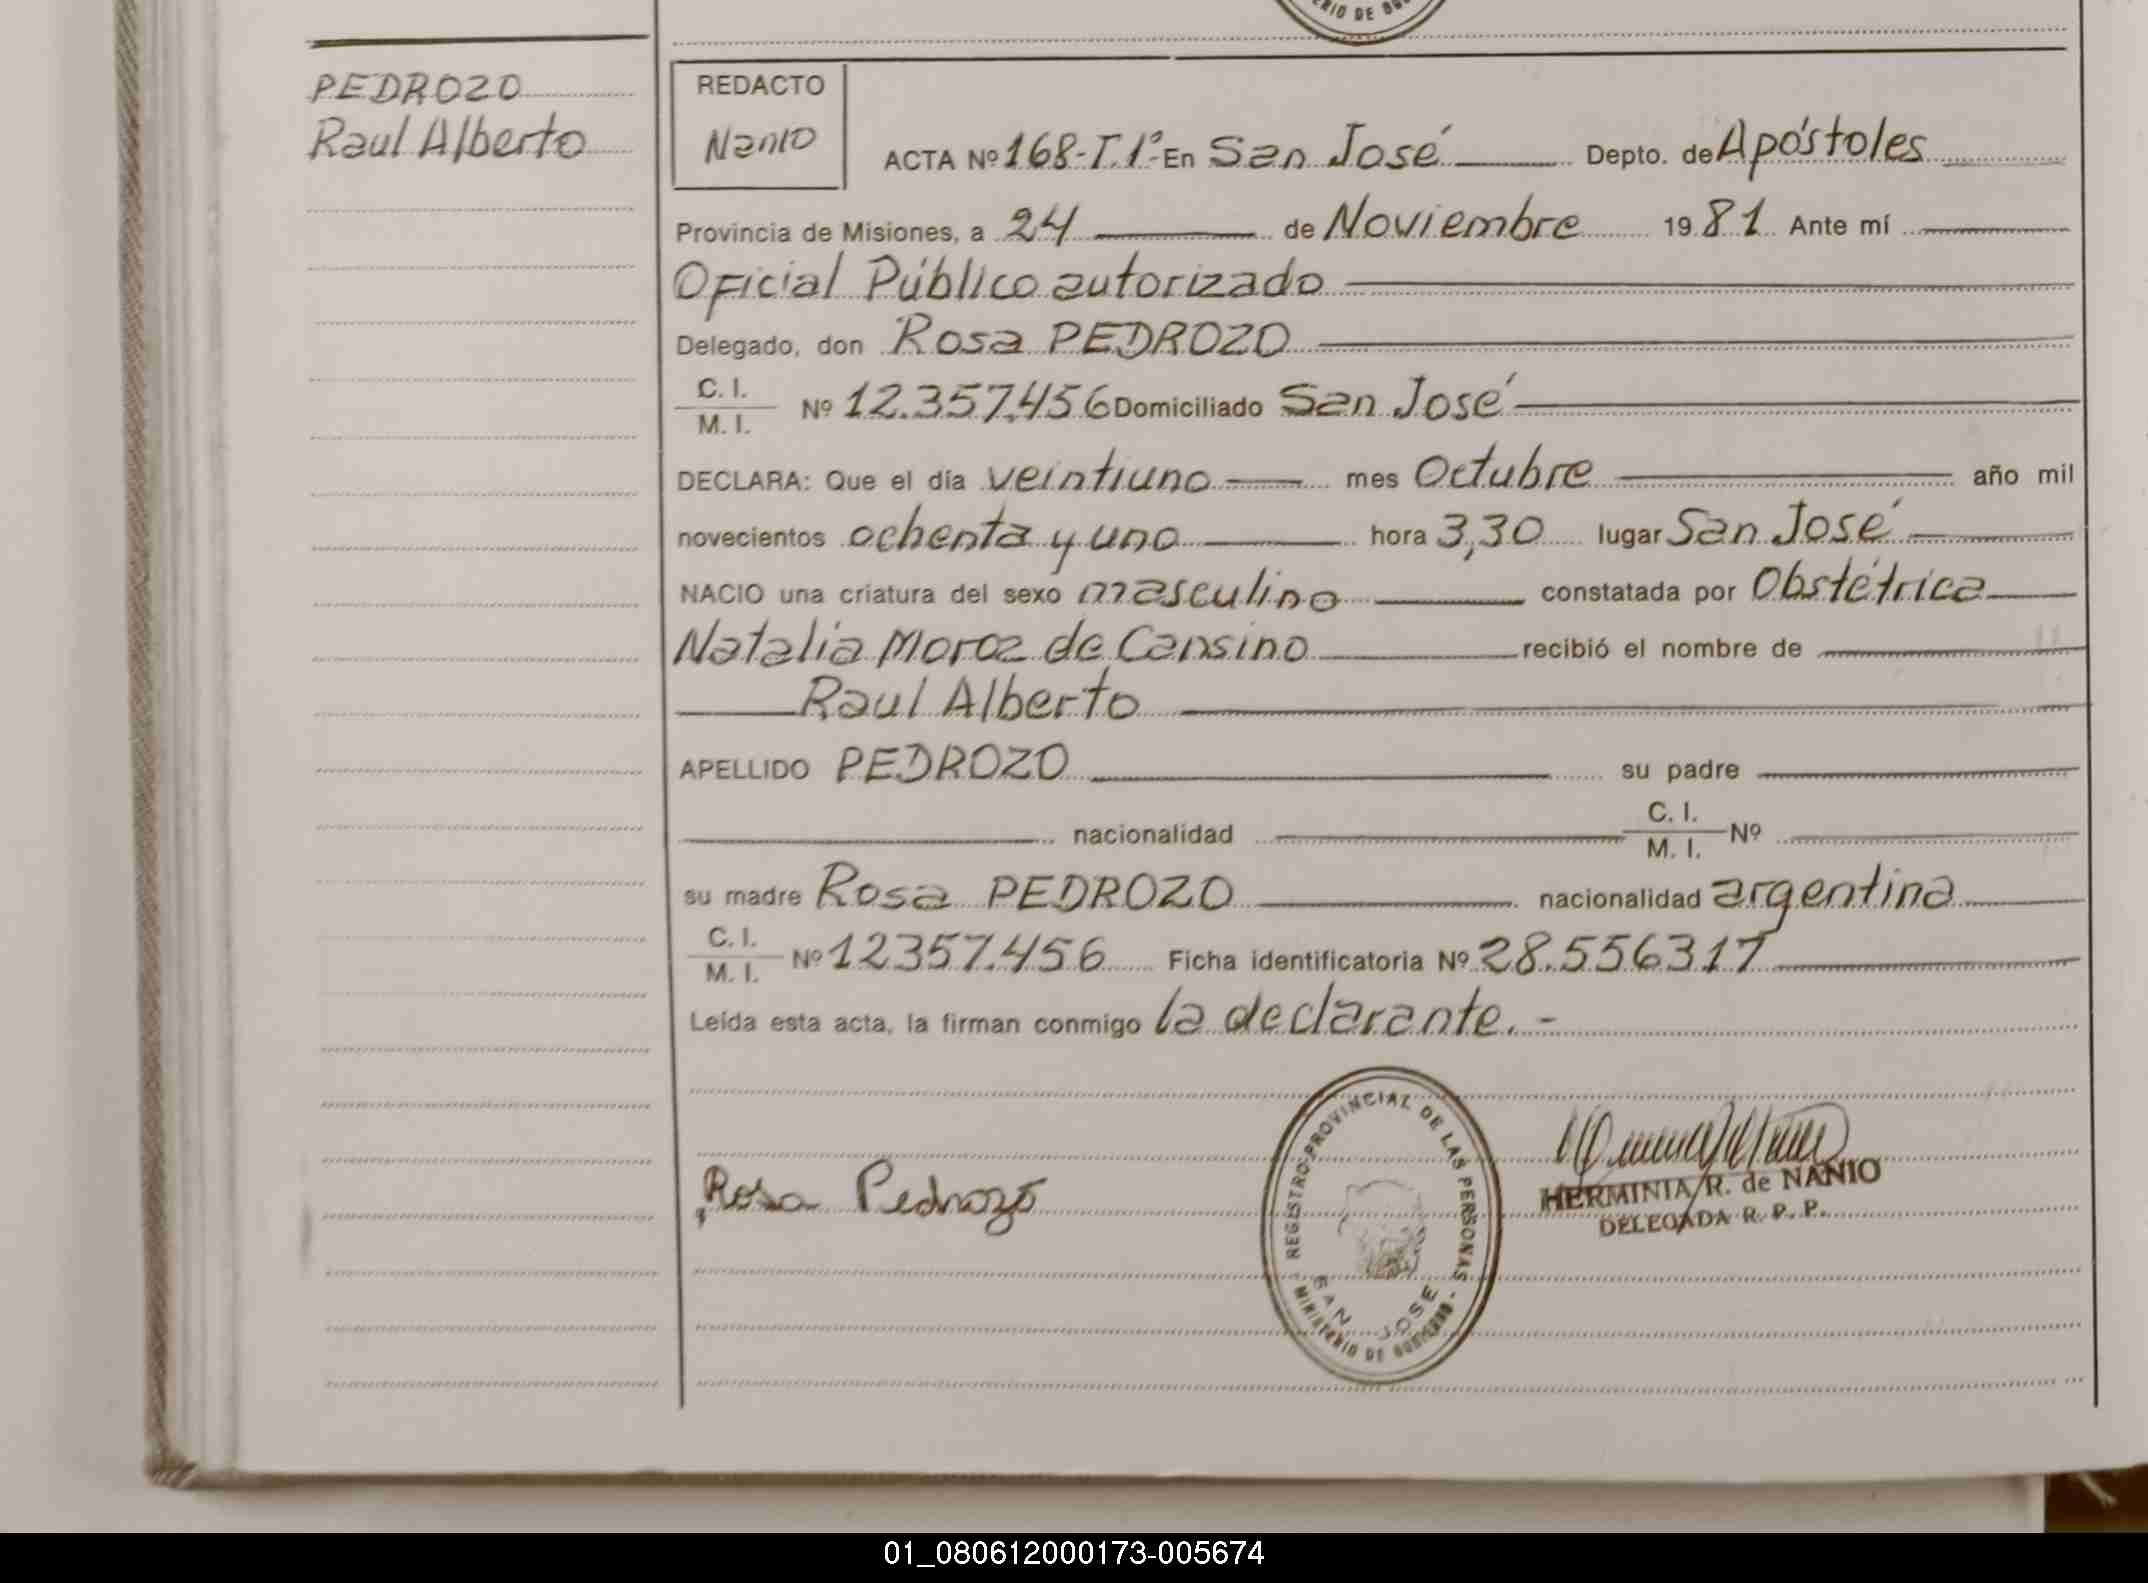 ERIO DE GO
PEDROZO
Raul Alberto
REDACTO
Nanio
ACTA Nº 168-T.1º- En San José Depto. de Apóstoles
Provincia de Misiones, a 24 de Noviembre 1981 Ante mí
Oficial Público autorizado
Delegado, don Rosa PEDROZO
C. I.
M. I. Nº 12.357.456 Domiciliado San José
DECLARA: Que el día veintiuno mes Octubre año mil
novecientos ochenta y uno hora 3,30 lugar San José
NACIO una criatura del sexo masculino constatada por Obstétrica
Natalia Moroz de Cansino recibió el nombre de
Raul Alberto
APELLIDO PEDROZO su padre
nacionalidad C. I.
M. I. Nº
su madre Rosa PEDROZO nacionalidad argentina
C. I.
M. I. Nº 12357.456 Ficha identificatoria Nº 28.556317
Leída esta acta, la firman conmigo la declarante. -
Rosa Pedrozo
REGISTRO PROVINCIAL DE LAS PERSONAS
SAN JOSE
MINISTERIO DE GOBIERNO
HERMINIA R. de NANIO
DELEGADA R. P. P.
01_080612000173-005674